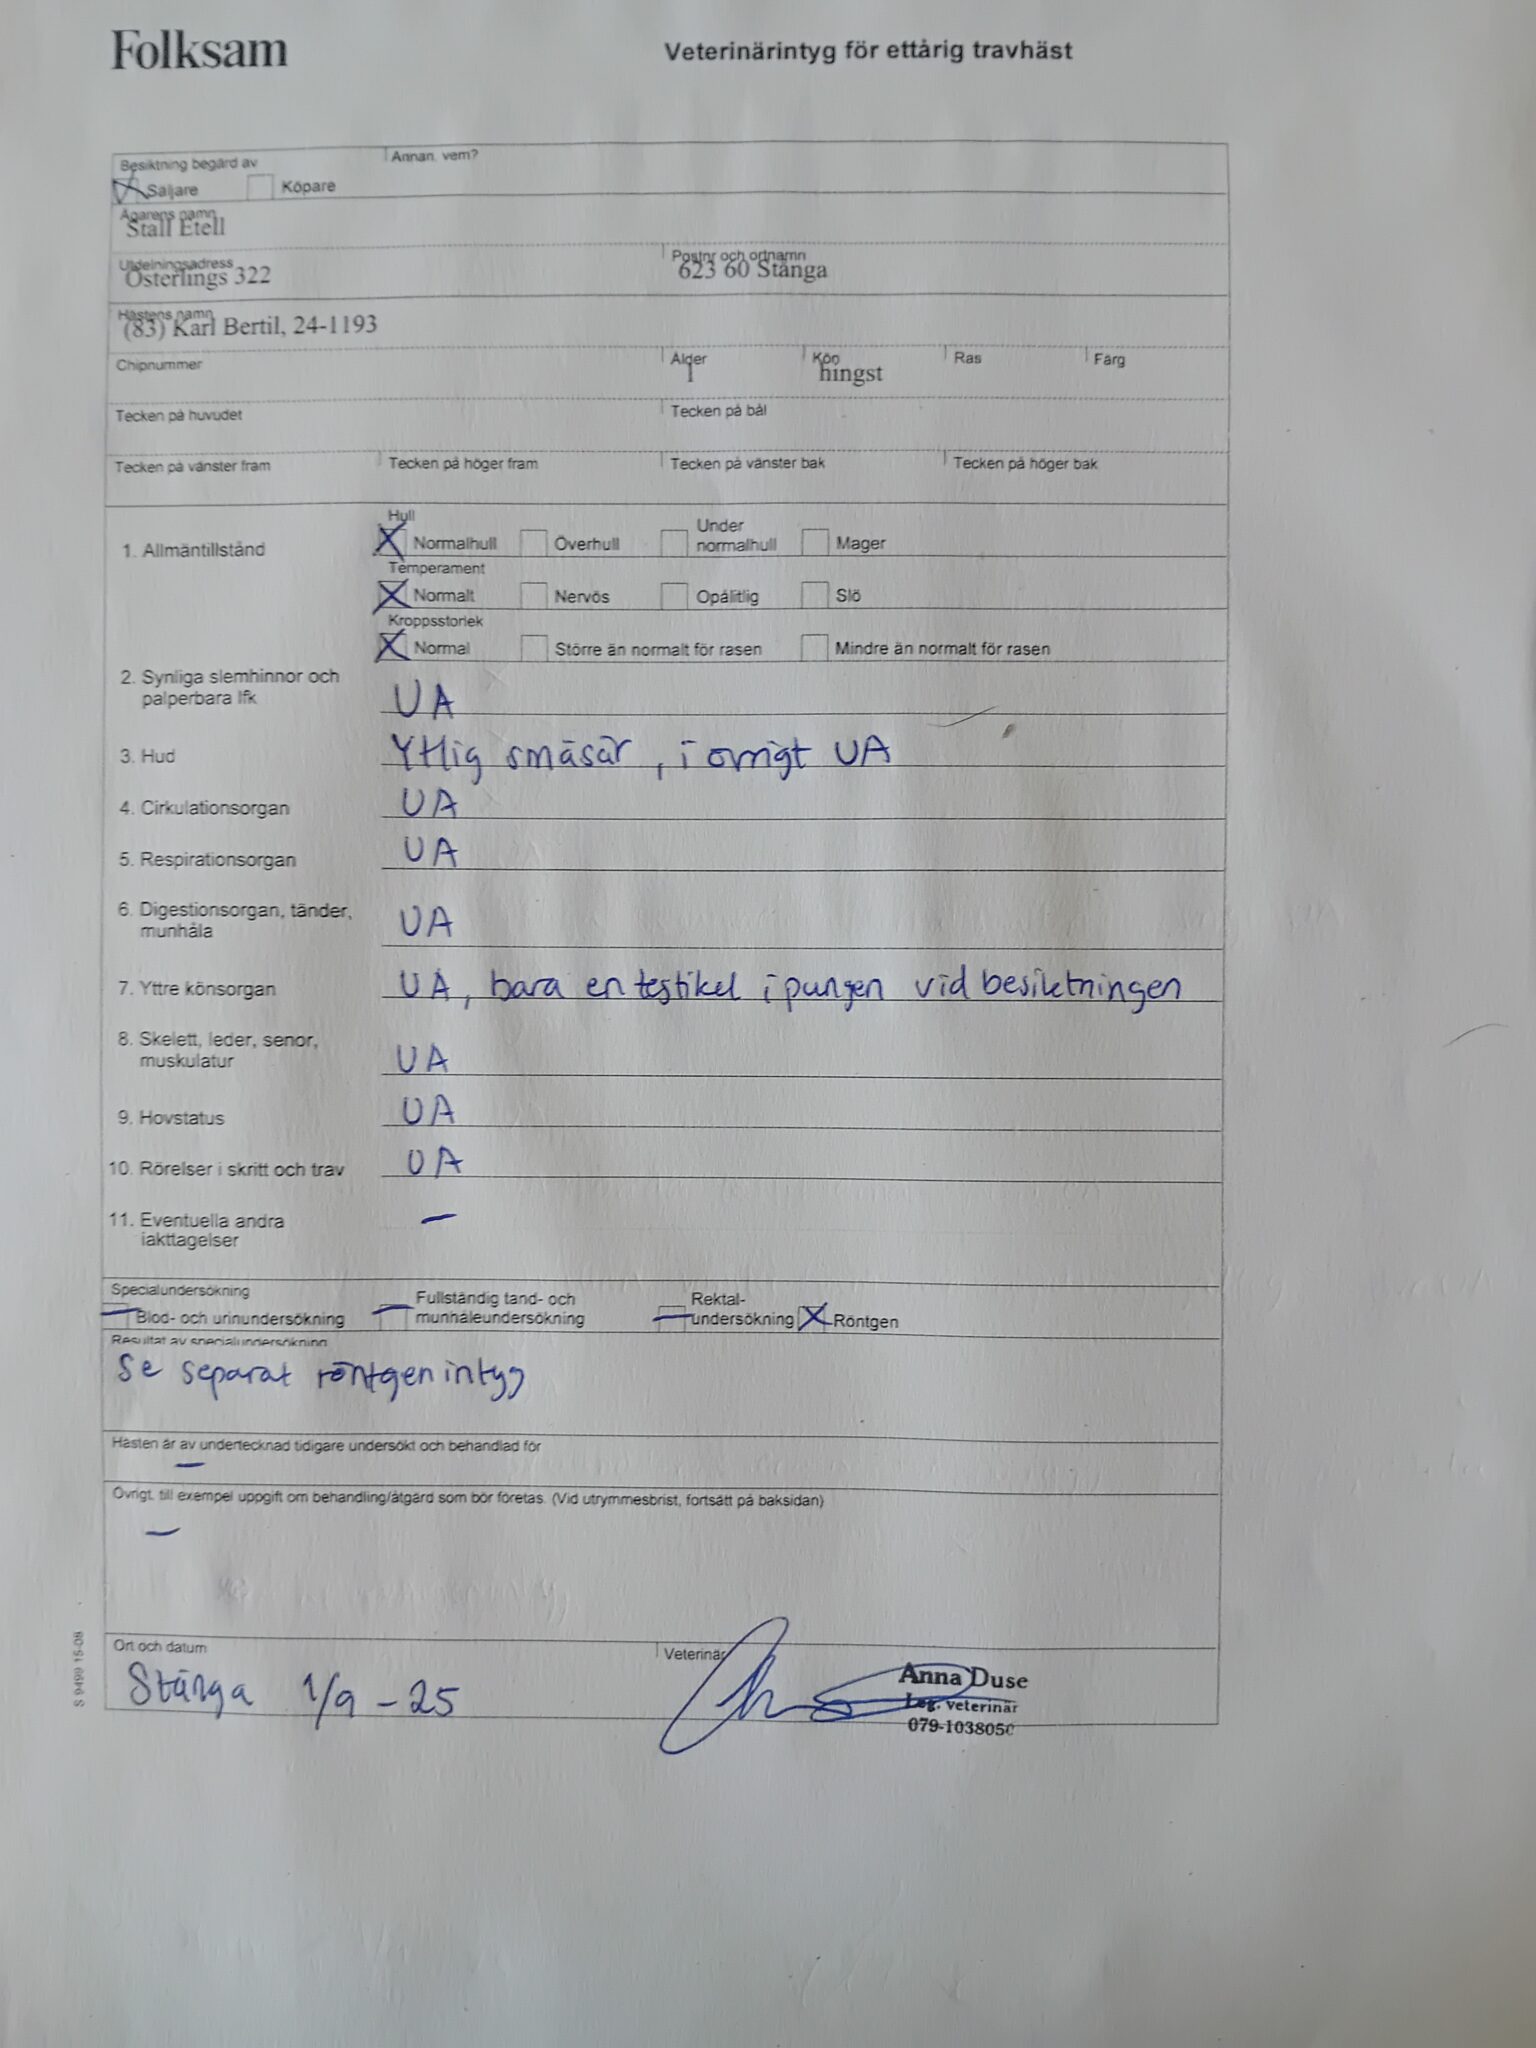 Folksam
Veterinärintyg för ettårig travhäst
Besiktning begärd av
Annan, vem?
Säljare Köpare
Ägarens namn
Stall Etell
Utdelningsadress Postnr och ortnamn
Österlings 322 623 60 Stånga
Hästens namn
(83) Karl Bertil, 24-1193
Chipnummer Ålder Kön Ras Färg
1 hingst
Tecken på huvudet Tecken på bål
Tecken på vänster fram Tecken på höger fram Tecken på vänster bak Tecken på höger bak
Hull
1. Allmäntillstånd Normalhull Överhull Under normalhull Mager
Temperament
Normalt Nervös Opålitlig Slö
Kroppsstorlek
Normal Större än normalt för rasen Mindre än normalt för rasen
2. Synliga slemhinnor och
palperbara lfk UA
3. Hud Ytlig småsår, i övrigt UA
4. Cirkulationsorgan UA
5. Respirationsorgan UA
6. Digestionsorgan, tänder,
munhåla UA
7. Yttre könsorgan UA, bara en testikel i pungen vid besiktningen
8. Skelett, leder, senor,
muskulatur UA
9. Hovstatus UA
10. Rörelser i skritt och trav UA
11. Eventuella andra –
iakttagelser
Specialundersökning
Blod- och urinundersökning Fullständig tand- och munhåleundersökning Rektal-undersökning Röntgen
Resultat av specialundersökning
Se separat röntgenintyg
Hästen är av undertecknad tidigare undersökt och behandlad för
–
Övrigt, till exempel uppgift om behandling/åtgärd som bör företas. (Vid utrymmesbrist, fortsätt på baksidan)
–
Ort och datum Veterinär
Stånga 1/9 -25
Anna Duse
Leg. veterinär
079-1038050
S 9499 15-08